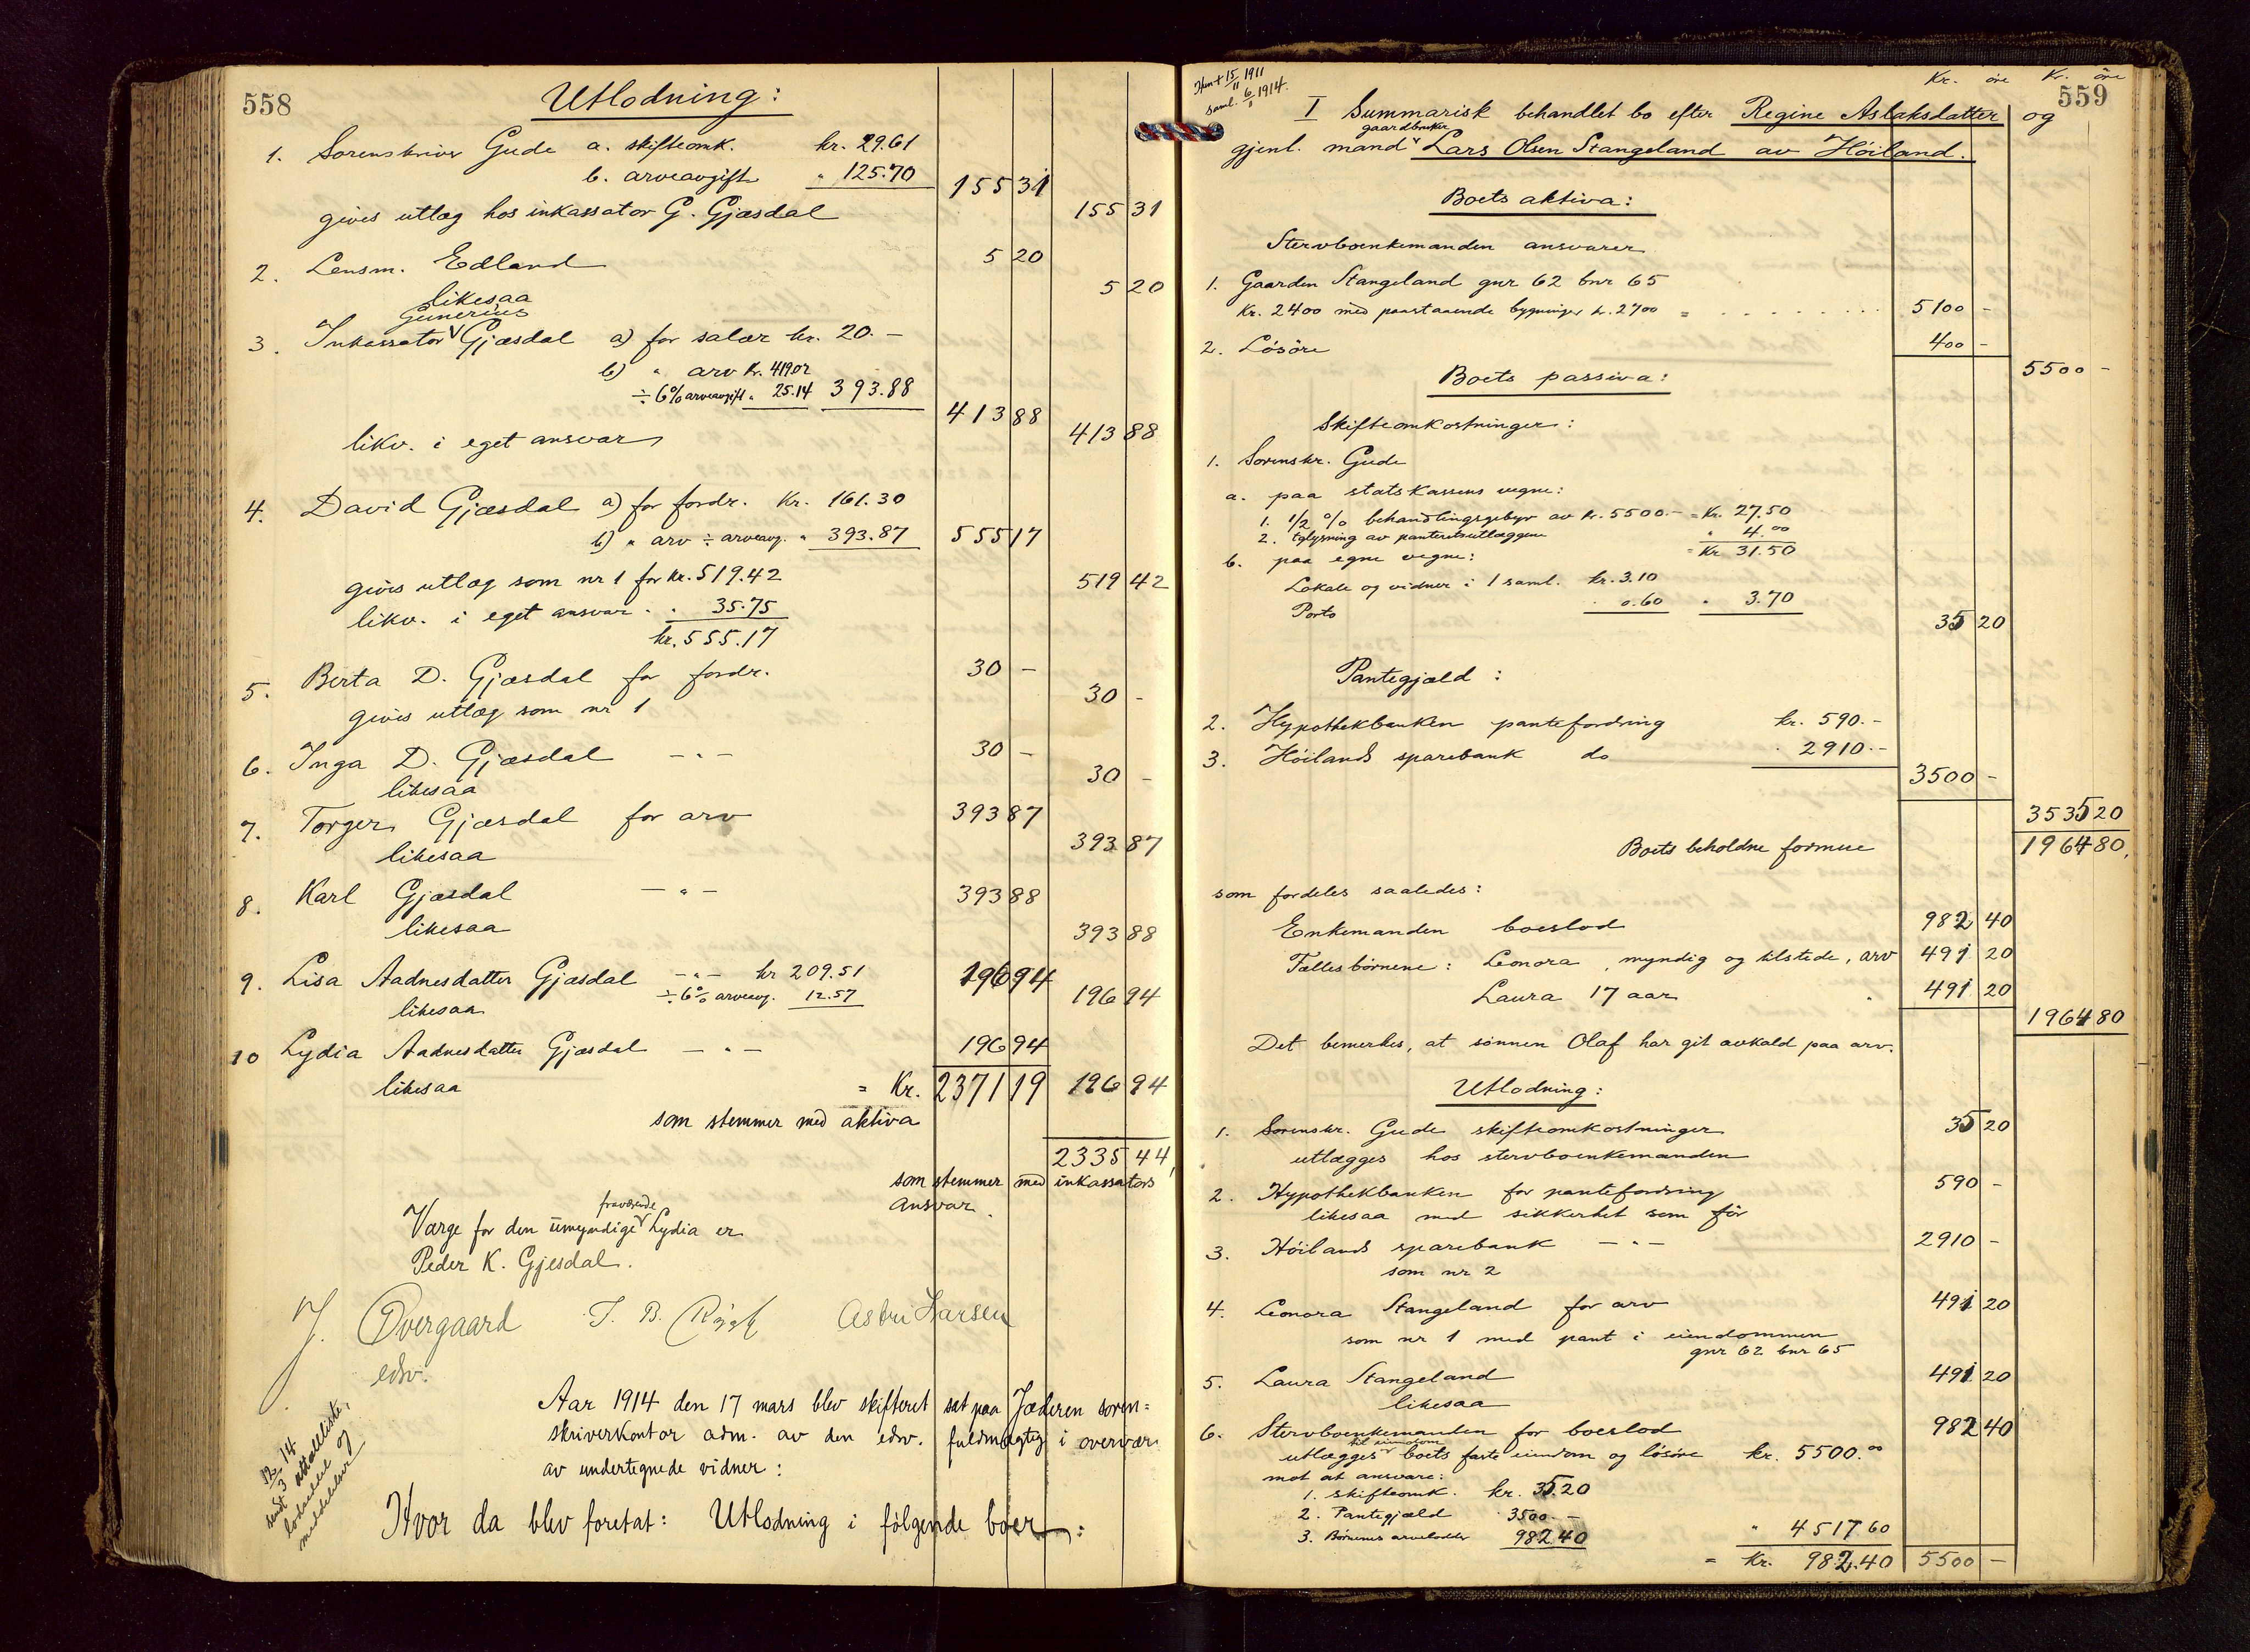 558
Utlodning:
1. Sorenskriver Gude a. skifteomk. kr. 29.61
b. arveavgift " 125.70 155 31
gives utlæg hos inkassator G. Gjæsdal 155 31
2. Lensm. Edland 5 20
likesaa 5 20
Gunerius
3. Inkassator Gjæsdal a) for salær kr. 20.-
b) " arv kr. 419.02
÷ 6% arveavgift " 25.14 393.88 413 88
likv. i eget ansvar 413 88
4. David Gjæsdal a) for fordr. Kr. 161.30
b) " arv ÷ arveavg. " 393.87 555 17
gives utlæg som nr 1 for kr. 519.42 519 42
likv. i eget ansvar " 35.75
kr. 555.17
5. Berta D. Gjæsdal for fordr. 30 -
gives utlæg som nr 1 30 -
6. Inga D. Gjæsdal - " - 30 -
likesaa 30 -
7. Torger Gjæsdal for arv 393 87
likesaa 393 87
8. Karl Gjæsdal - " - 393 88
likesaa 393 88
9. Lisa Aadnesdatter Gjæsdal - " - kr 209.51 196 94
÷ 6% arveavg. 12.57 196 94
likesaa
10 Lydia Aadnesdatter Gjæsdal - " - 196 94
likesaa = Kr. 2371 19 196 94
som stemmer med aktiva
2335 44
som stemmer med inkassators
ansvar.
fraværende
Værge for den umyndige Lydia er
Peder K. Gjesdal.
J. Overgaard T. B. Astri Larsen
edsv.
Aar 1914 den 17 mars blev skifteret sat paa Jæderen soren=
skriverkontor adm. av den edsv. fuldmægtig i overvær
av undertegnede vidner:
14
sendt 3
lodseddel og
meddelelser
Hvor da blev foretat: Utlodning i følgende boer:
559
Kr. øre Kr. øre
15/11 1911
saml. 6/1 1914.
I Summarisk behandlet bo efter Regine Aslaksdatter og
gaardbruker
gjenl. mand Lars Olsen Stangeland av Höiland.
Boets aktiva:
Stervboenkemanden ansvarer
1. Gaarden Stangeland gnr 62 bnr 65
Kr. 2400 med paastaaende bygninger kr. 2700 = 5100 -
2. Lösöre 400 -
5500 -
Boets passiva:
Skifteomkostninger:
1. Sorenskr. Gude
a. paa statskassens vegne:
1. 1/2 % behandlingsgebyr av kr. 5500.- = Kr. 27.50
2. Tglysning av panteretsutlæggene " 4.00
= Kr 31.50
b. paa egne vegne:
Lokale og vidner i 1 saml. kr. 3.10
Porto 0.60 " 3.70
35 20
Pantegjæld:
2. Hypothekbanken pantefordring kr. 590.-
3. Höilands sparebank do " 2910.-
3500 -
3535 20
Boets beholdne formue 1964 80
som fordeles saaledes:
Enkemanden boeslod 982 40
Fællesbørnene: Leonora, myndig og tilstede, arv 491 20
Laura 17 aar " 491 20
1964 80
Det bemerkes, at sönnen Olaf har git avkald paa arv.
Utlodning:
1. Sorenskr. Gude skifteomkostninger 35 20
utlægges hos stervboenkemanden
2. Hypothekbanken for pantefordring 590 -
likesaa med sikkerhet som för
3. Höilands sparebank - " - 2910 -
som nr 2
4. Leonora Stangeland for arv 491 20
som nr 1 med pant i eiendommen
gnr 62 bnr 65
5. Laura Stangeland 491 20
likesaa
6. Stervboenkemanden for boeslod 982 40
til eiendom
utlægges boets faste eiendom og lösöre kr. 5500.00
mot at ansvare:
1. skifteomk. kr. 35.20
2. Pantegjæld 3500.-
3. Børnenes arvelodder 982.40 " 4517 60
= Kr. 982.40 5500 -